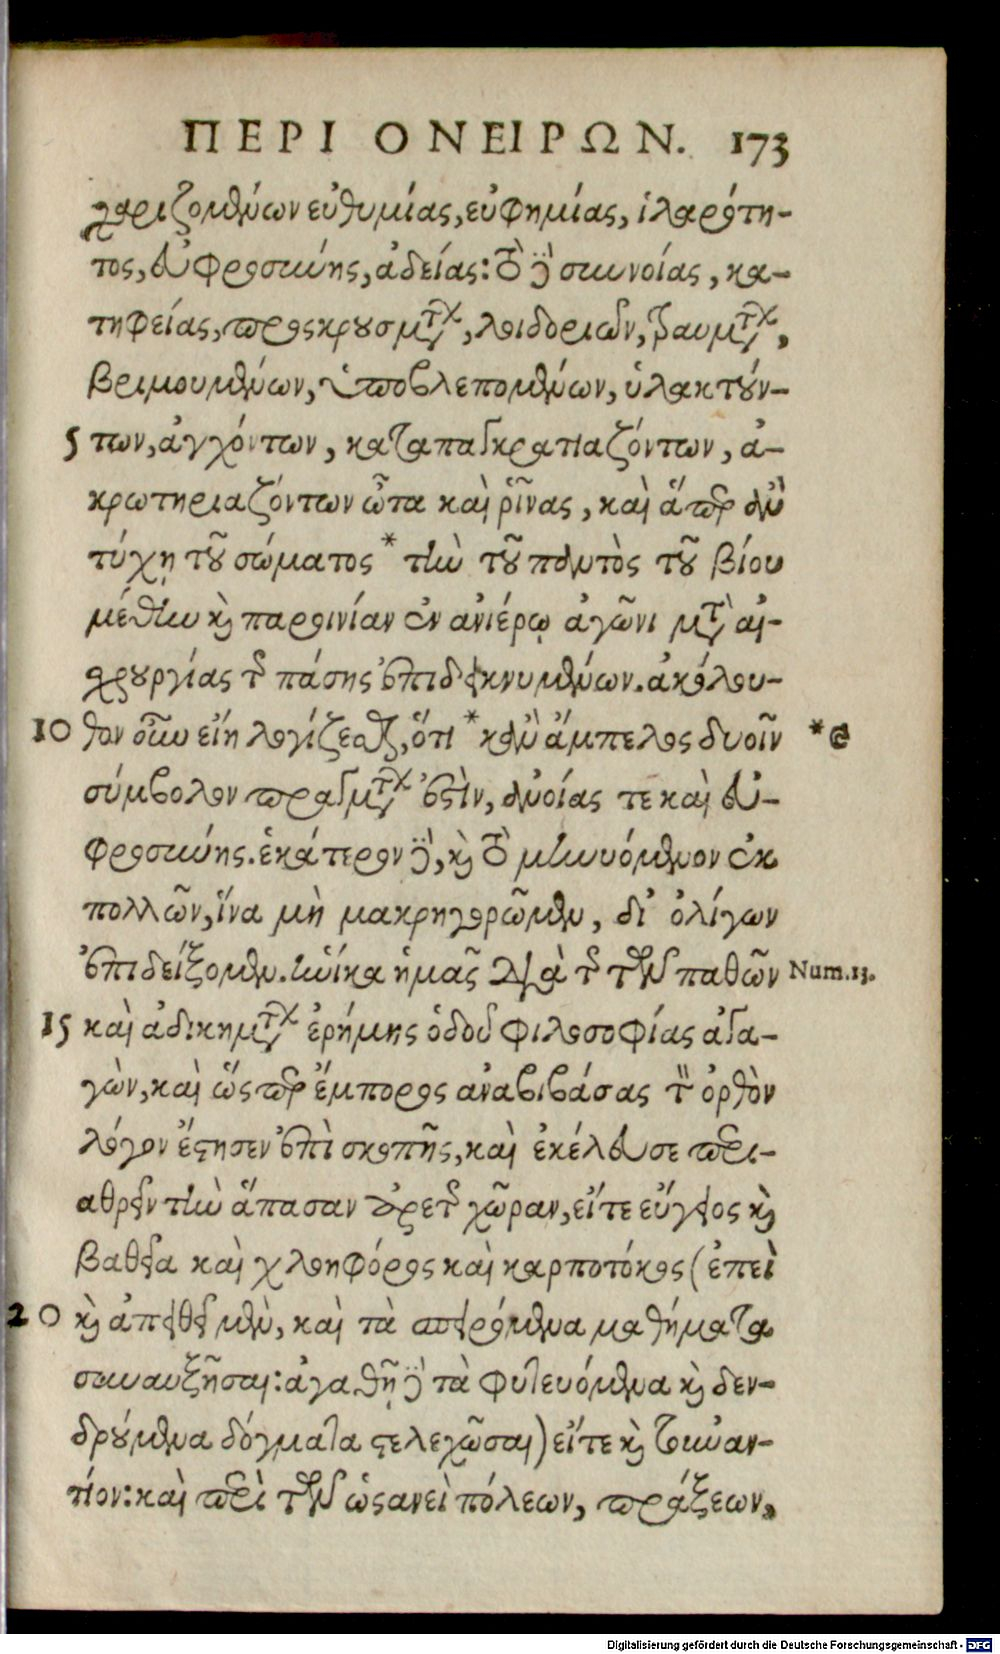 ΠΕΡΙ ΟΝΕΙΡΩΝ. 173
χαριζομένων εὐθυμίας, εὐφημίας, ἱλαρότη-
τος, εὐφροσύνης, ἀδείας: τὸ δὲ συννοίας, κα-
τηφείας, προσκρουσμάτων, λοιδοριῶν, τραυμάτων,
βριμουμένων, ὑποβλεπομένων, ὑλακτούν-
5 των, ἀγχόντων, καταπαγκρατιαζόντων, ἀ-
κρωτηριαζόντων ὦτα καὶ ῥῖνας, καὶ ἅπερ ἂν
τύχῃ τοῦ σώματος * τὴν τοῦ παντὸς τοῦ βίου
μέθην καὶ παροινίαν ἐν ἀνιέρῳ ἀγῶνι μετὰ αἰ-
σχρουργίας τῆς πάσης ἐπιδεικνυμένων. ἀκόλου-
10 θον οὖν εἴη λογίζεσθαι, ὅτι * κἂν ἄμπελος δυοῖν * @
σύμβολον πραγμάτων ἐστὶν, ἀνοίας τε καὶ εὐ-
φροσύνης. ἑκάτερον δὲ, καὶ τὸ μηνυόμενον ἐκ
πολλῶν, ἵνα μὴ μακρηγορῶμεν, δι' ὀλίγων
ἐπιδείξομεν. ἡνίκα ἡμᾶς διὰ τῆς τῶν παθῶν Num. 13.
15 καὶ ἀδικημάτων ἐρήμης ὁδοῦ φιλοσοφίας ἀγα-
γὼν, καὶ ὥσπερ ἔμπορος ἀναβιβάσας τὸν ὀρθὸν
λόγον ἔστησεν ἐπὶ σκοπῆς, καὶ ἐκέλευσε περι-
αθρεῖν τὴν ἅπασαν ἀρετῆς χῶραν, εἴτε εὔγειος καὶ
βαθεῖα καὶ χλοηφόρος καὶ καρποτόκος (ἐπεὶ
20 καὶ ἀπειθεῖ μὲν, καὶ τὰ σπειρόμενα μαθήματα
συναυξῆσαι: ἀγαθὴ δὲ τὰ φυτευόμενα καὶ δεν-
δρούμενα δόγματα στελεχῶσαι) εἴτε καὶ τοὐναν-
τίον: καὶ περὶ τῶν ὡσανεὶ πόλεων, πράξεων,
Digitalisierung gefördert durch die Deutsche Forschungsgemeinschaft - DFG